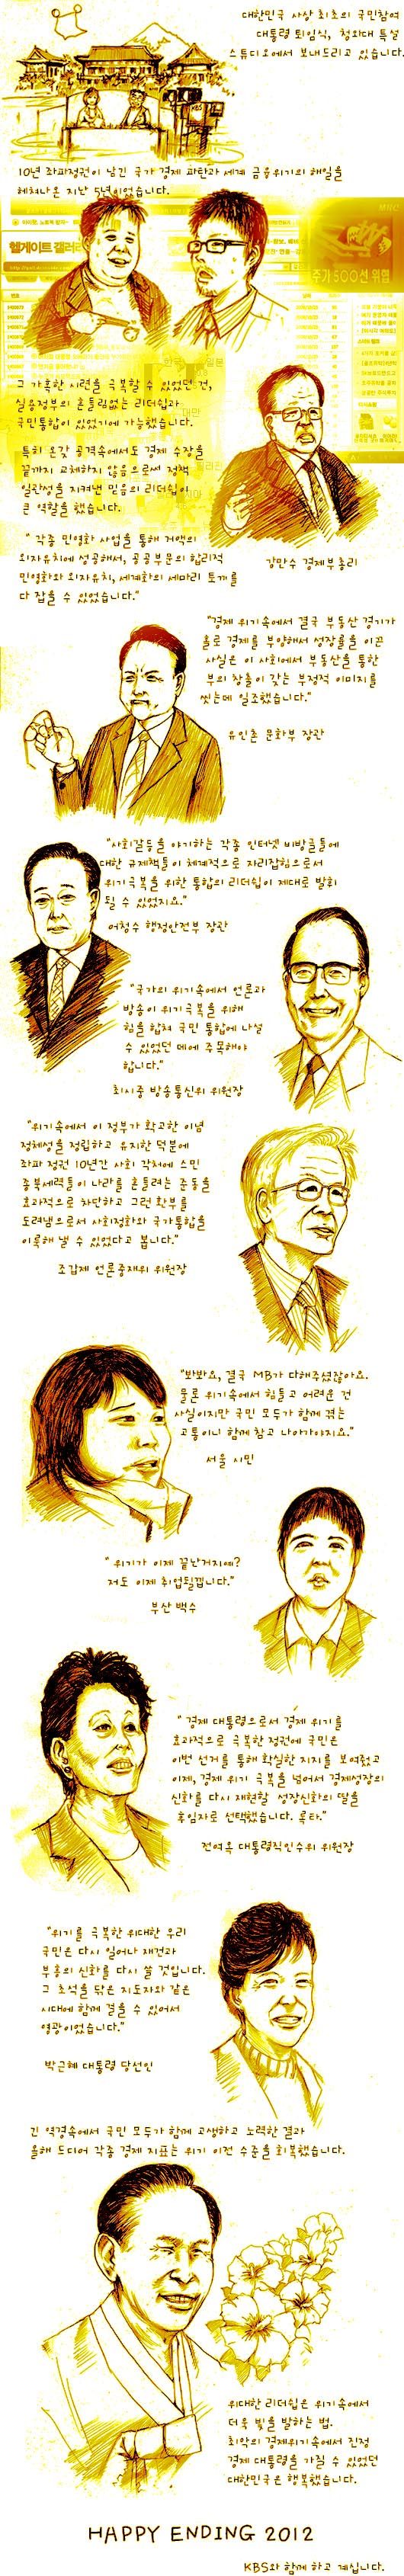 대한민국 사상 최초의 국민참여
대통령 퇴임식, 청와대 특설
스튜디오에서 보내드리고 있습니다.
KBS
10년 좌파정권이 남긴 국가 경제 파탄과 세계 금융위기의 해일을
헤쳐나온 지난 5년이었습니다.
헬게이트 갤러리
주가 500선 위협
그 가혹한 시련을 극복할 수 있었던 건,
실용정부의 흔들림없는 리더쉽과
국민통합이 있었기에 가능했습니다.
특히 온갖 공격속에서도 경제 수장을
끝까지 교체하지 않음으로써 정책
일관성을 지켜낸 믿음의 리더쉽이
큰 역할을 했습니다.
"각종 민영화 사업을 통해 거액의
외자유치에 성공해서, 공공부문의 합리적
민영화와 외자유치, 세계화의 세마리 토끼를
다 잡을 수 있었습니다."
강만수 경제부총리
"경제 위기속에서 결국 부동산 경기가
홀로 경제를 부양해서 성장률을 이끈
사실은 이 사회에서 부동산을 통한
부의 창출이 갖는 부정적 이미지를
씻는데 일조했습니다."
유인촌 문화부 장관
"사회갈등을 야기하는 각종 인터넷 비방글들에
대한 규제책들이 체계적으로 자리잡힘으로서
위기극복을 위한 통합의 리더쉽이 제대로 발휘
될 수 있었지요."
어청수 행정안전부 장관
"국가의 위기속에서 언론과
방송이 위기극복을 위해
힘을 합쳐 국민 통합에 나설
수 있었던 데에 주목해야
합니다."
최시중 방송통신위 위원장
"위기속에서 이 정부가 확고한 이념
정체성을 정립하고 유지한 덕분에
좌파 정권 10년간 사회 각처에 스민
종북세력들이 나라를 흔들려는 준동을
효과적으로 차단하고 그런 환부를
도려냄으로서 사회정화와 국가통합을
이룩해 낼 수 있었다고 봅니다."
조갑제 언론중재위 위원장
"봐봐요, 결국 MB가 다해주셨잖아요.
물론 위기속에서 힘들고 어려운 건
사실이지만 국민 모두가 함께 겪는
고통이니 함께 참고 나아가야지요."
서울 시민
"위기가 이제 끝난거지예?
저도 이제 취업될껍니다."
부산 백수
"경제 대통령으로서 경제 위기를
효과적으로 극복한 정권에 국민은
이번 선거를 통해 확실한 지지를 보여줬고
이제, 경제 위기 극복을 넘어서 경제성장의
신화를 다시 재현할 성장신화의 딸을
후임자로 선택했습니다. 록타."
전여옥 대통령직인수위 위원장
"위기를 극복한 위대한 우리
국민은 다시 일어나 재건과
부흥의 신화를 다시 쓸 것입니다.
그 초석을 닦은 지도자와 같은
시대에 함께 걸을 수 있어서
영광이었습니다."
박근혜 대통령 당선인
긴 역경속에서 국민 모두가 함께 고생하고 노력한 결과
올해 드디어 각종 경제 지표는 위기 이전 수준을 회복했습니다.
위대한 리더쉽은 위기속에서
더욱 빛을 발하는 법.
최악의 경제위기속에서 진정
경제 대통령을 가질 수 있었던
대한민국은 행복했습니다.
HAPPY ENDING 2012
KBS와 함께 하고 계십니다.